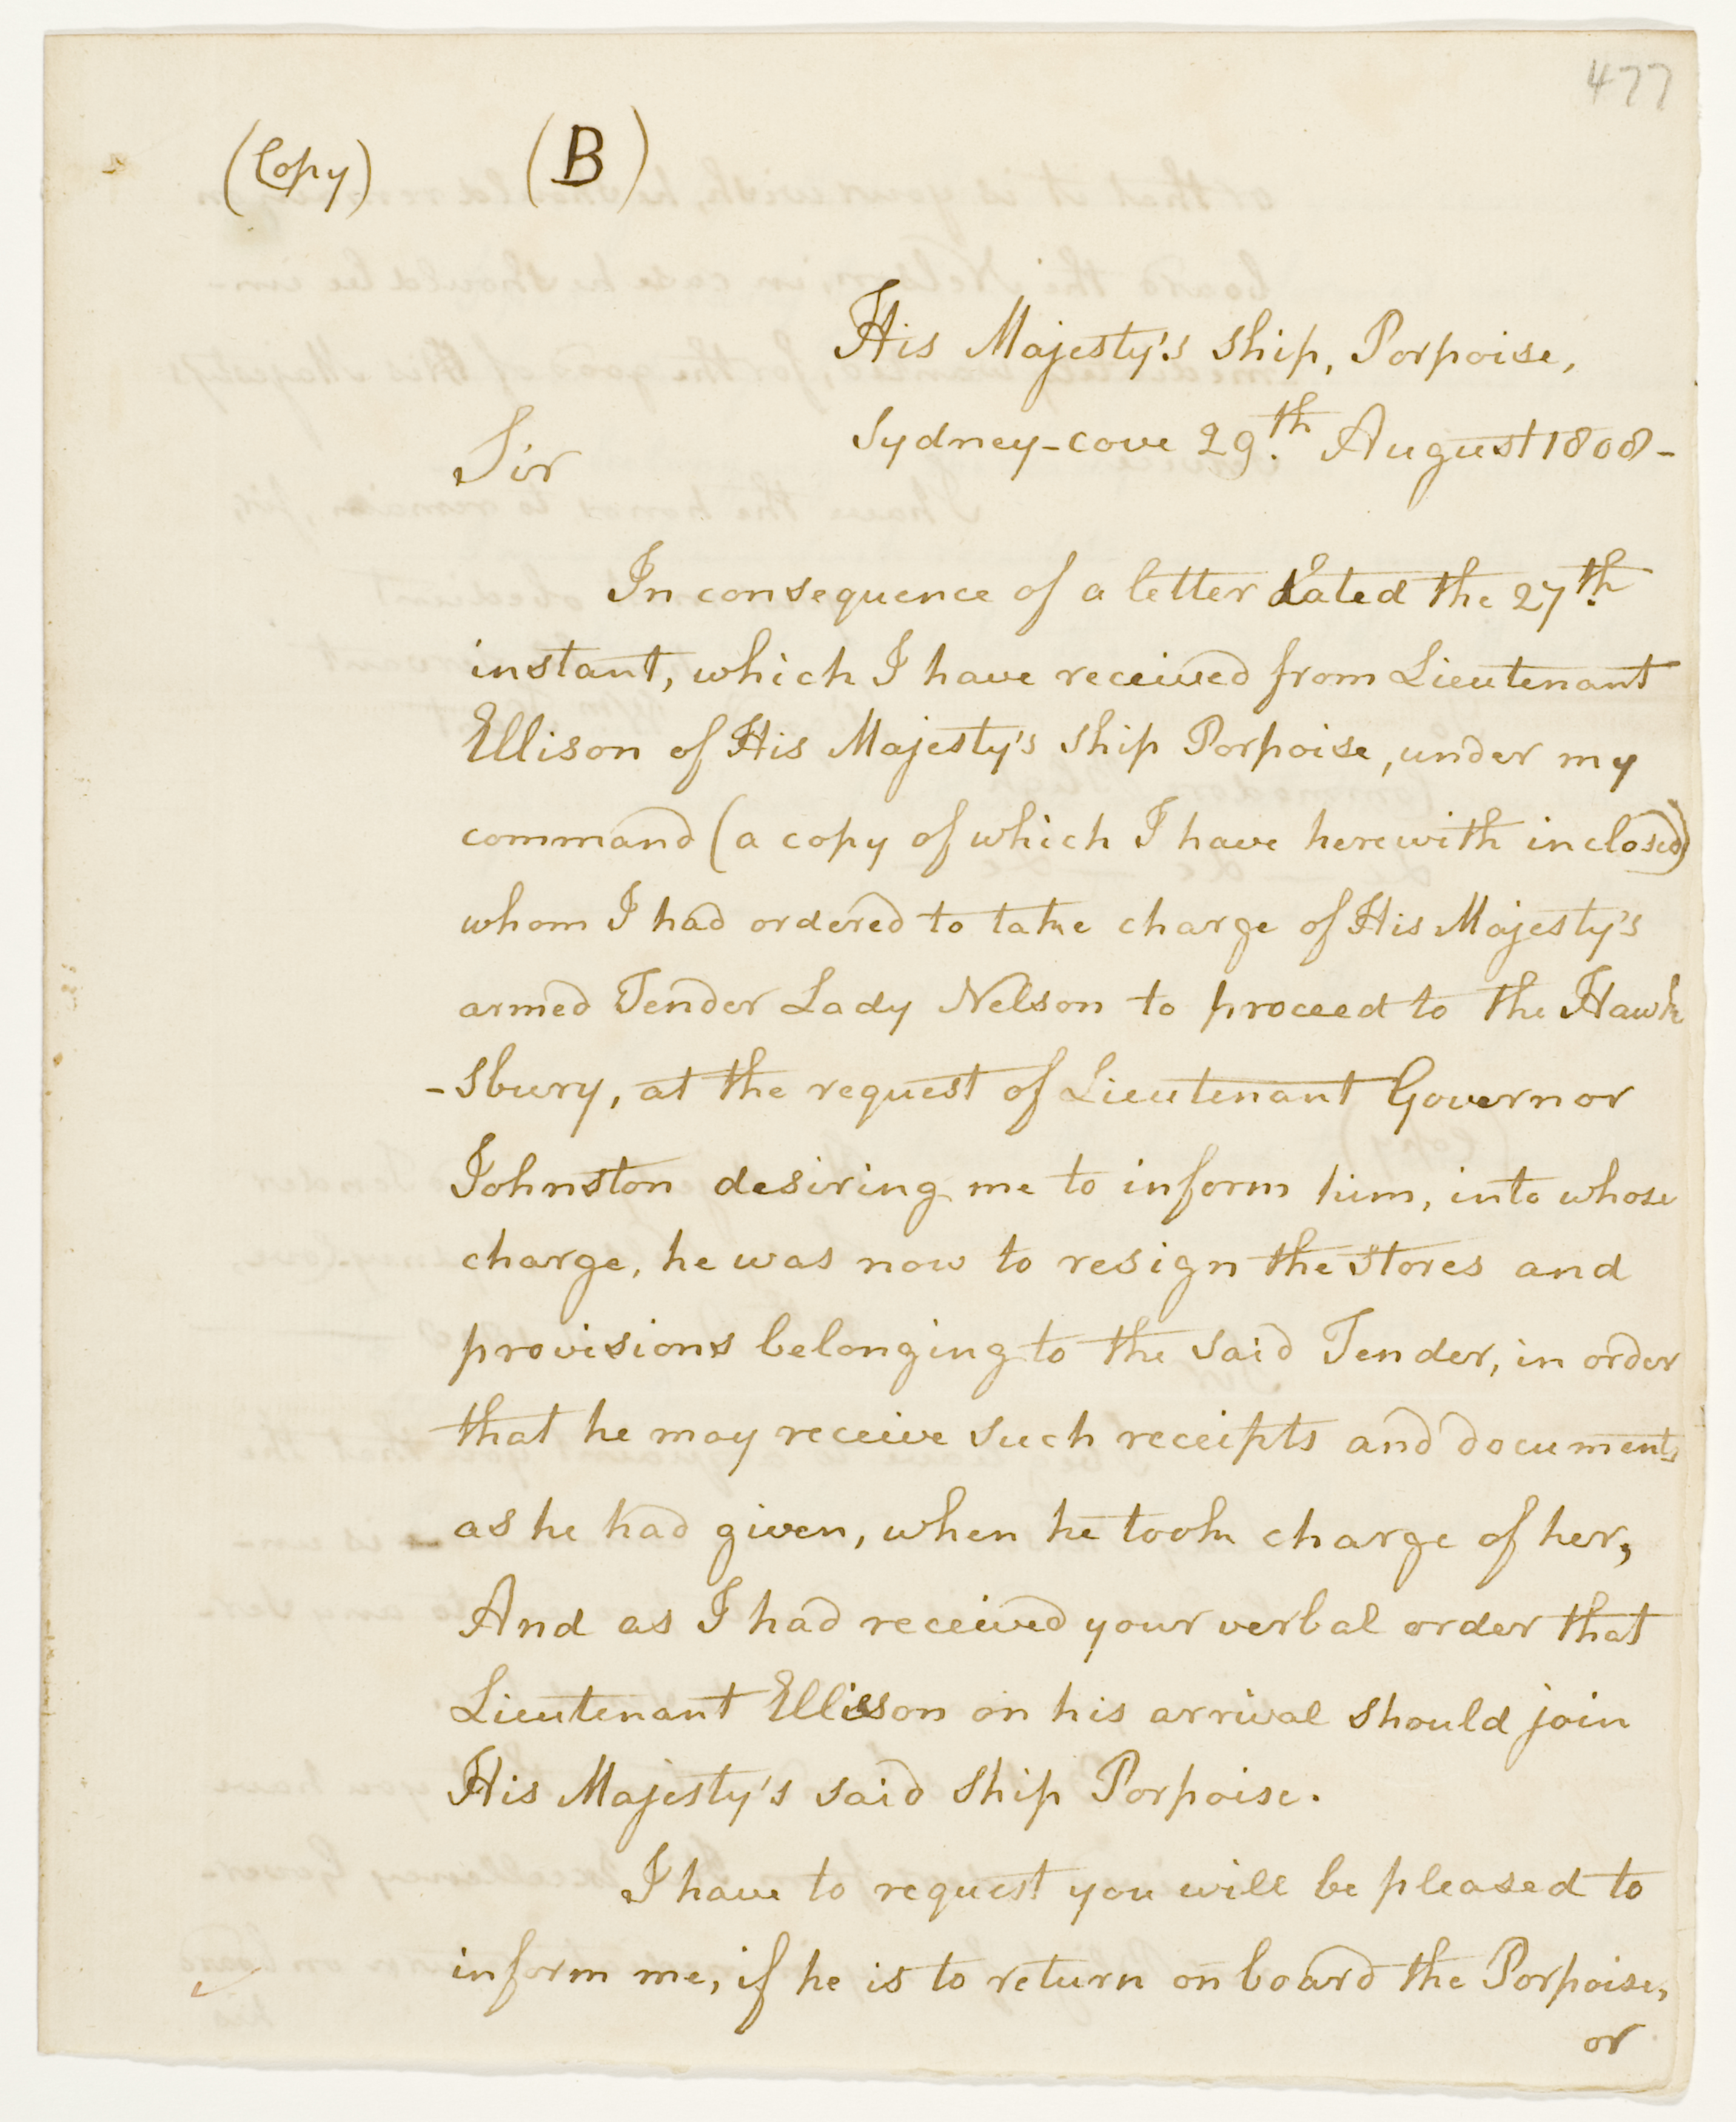 477
(Copy) (B)
His Majesty's Ship, Porpoise,
Sydney-cove 29th August 1808-
Sir
In consequence of a letter dated the 27th
instant, which I have received from Lieutenant
Ellison of His Majesty's Ship Porpoise, under my
command (a copy of which I have herewith inclosed)
whom I had ordered to take charge of His Majesty's
armed Tender Lady Nelson to proceed to the Hawk
-sbury, at the request of Lieutenant Governor
Johnston desiring me to inform him, into whose
charge, he was now to resign the stores and
provisions belonging to the said Tender, in order
that he may receive such receipts and documents
as he had given, when he took charge of her,
And as I had received your verbal order that
Lieutenant Ellisson on his arrival should join
His Majesty's said Ship Porpoise.
I have to request you will be pleased to
inform me, if he is to return on board the Porpoise,
or